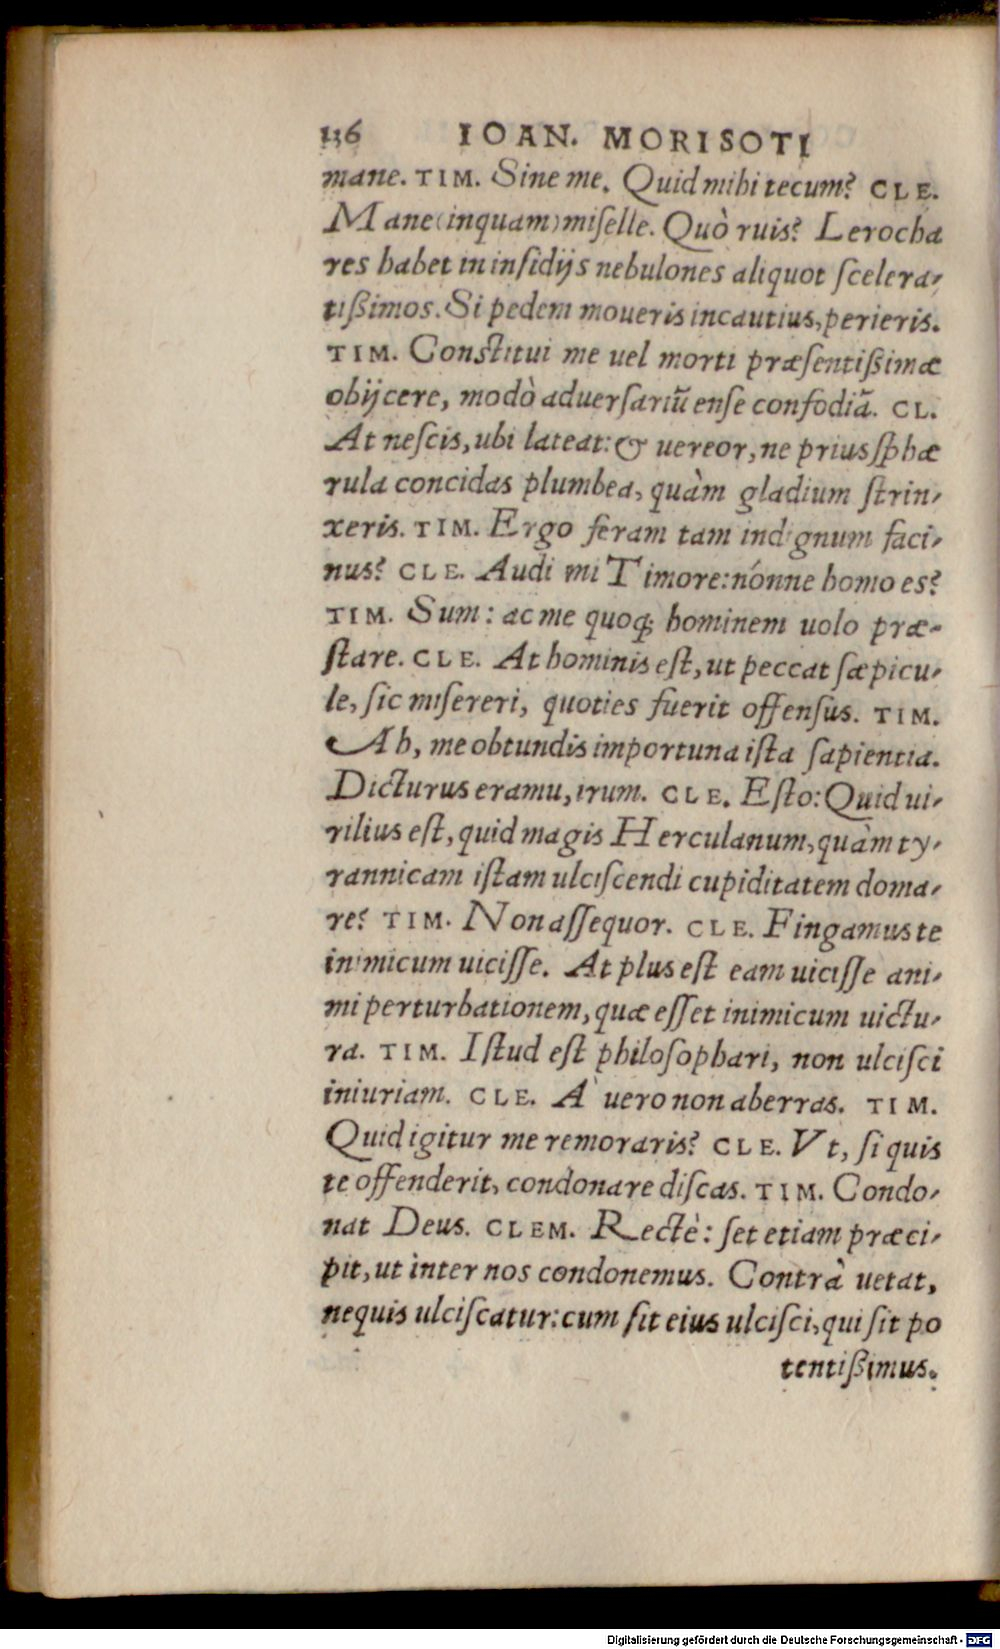 136 IOAN. MORISOTI
mane. TIM. Sine me. Quid mihi tecum? CLE.
Mane (inquam) miſelle. Quò ruis? Lerocha
res habet in inſidijs nebulones aliquot ſcelera-
tißimos. Si pedem moueris incautius, perieris.
TIM. Conſtitui me uel morti præſentißimæ
obijcere, modò aduerſariũ enſe confodiã. CL.
At neſcis, ubi lateat: & uereor, ne prius ſphæ
rula concidas plumbea, quàm gladium ſtrin-
xeris. TIM. Ergo feram tam indignum faci-
nus? CLE. Audi mi Timore: nónne homo es?
TIM. Sum: ac me quoq; hominem uolo præ-
ſtare. CLE. At hominis eſt, ut peccat ſæpicu-
le, ſic miſereri, quoties fuerit offenſus. TIM.
Ah, me obtundis importuna iſta ſapientia.
Dicturus eram u, irum. CLE. Eſto: Quid ui-
rilius eſt, quid magis Herculanum, quàm ty-
rannicam iſtam ulciſcendi cupiditatem doma-
re? TIM. Non aſſequor. CLE. Fingamus te
inimicum uiciſſe. At plus eſt eam uiciſſe ani-
mi perturbationem, quæ eſſet inimicum uictu-
ra. TIM. Iſtud eſt philoſophari, non ulciſci
iniuriam. CLE. À uero non aberras. TIM.
Quid igitur me remoraris? CLE. Vt, ſi quis
te offenderit, condonare diſcas. TIM. Condo-
nat Deus. CLEM. Rectè: ſet etiam præci-
pit, ut inter nos condonemus. Contrà uetat,
nequis ulciſcatur: cum ſit eius ulciſci, qui ſit po
tentißimus.
Digitalisierung gefördert durch die Deutsche Forschungsgemeinschaft - DFG